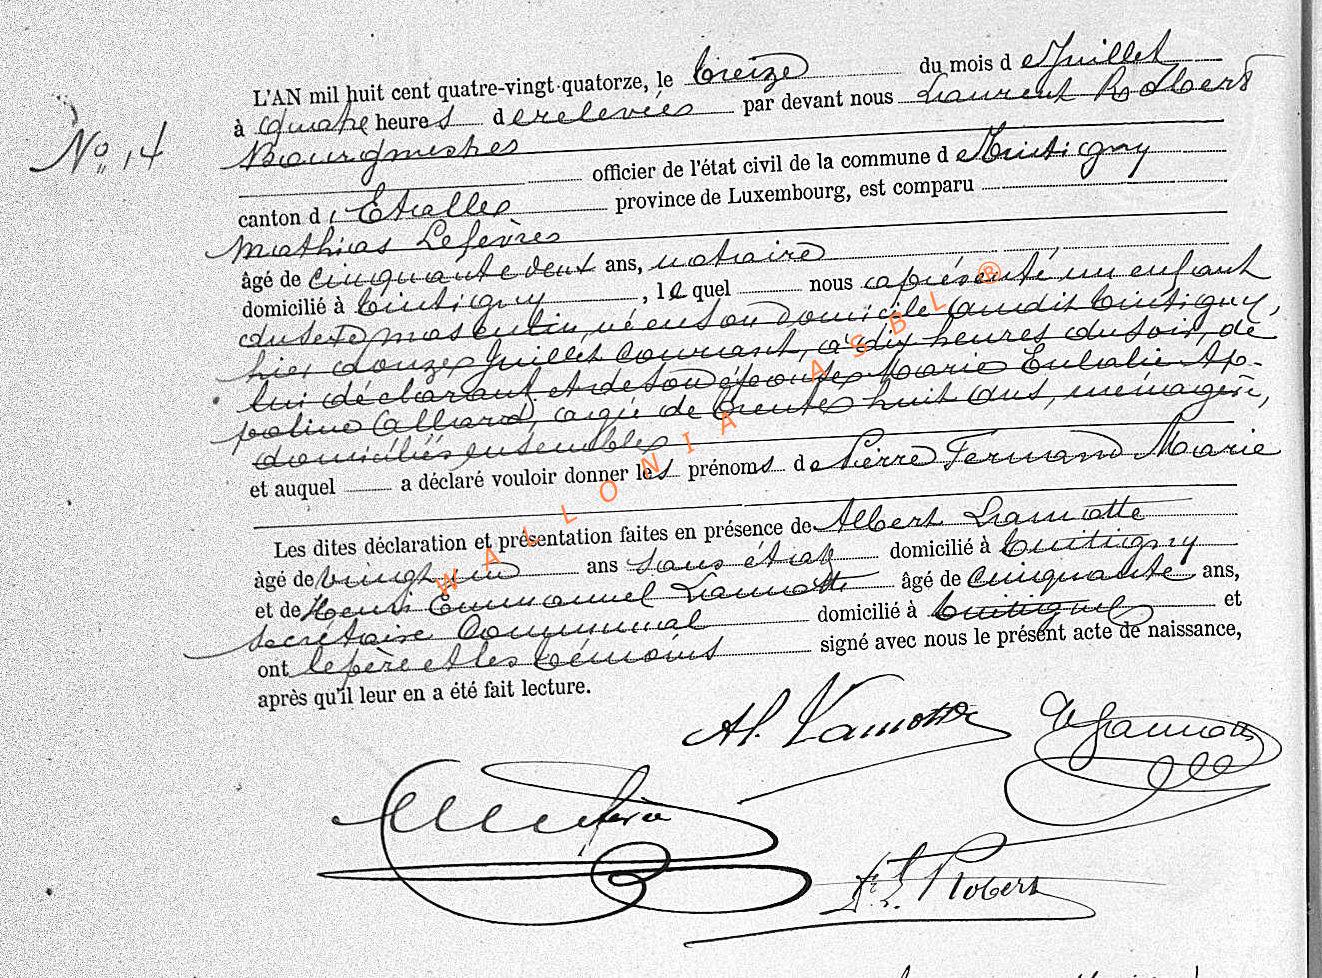 L'AN mil huit cent quatre-vingt-quatorze, le treize du mois d e Juillet
à quatre heures de relevées par devant nous Laurent Robert
No 14
Bourgmestre
officier de l'état civil de la commune de Tintigny
canton d'Etalle province de Luxembourg, est comparu
Mathias Lefèvre
âgé de cinquante deux ans, notaire
domicilié à Tintigny, lequel nous a présenté un enfant
du sexe masculin, né en son domicile audit Tintigny,
hier douze Juillet courant, à dix heures du soir, de
lui déclarant et de son épouse Marie Eulalie Ap-
poline Allard, agée de trente huit ans, ménagère,
domiciliés ensembles
et auquel a déclaré vouloir donner les prénoms de Pierre Fernand Marie
Les dites déclaration et présentation faites en présence de Albert Lamotte
âgé de vingt un ans sans état domicilié à Tintigny
et de Henri Emmanuel Lamotte âgé de cinquante ans,
secrétaire communal domicilié à Tintigny et
ont le père et les témoins signé avec nous le présent acte de naissance,
après qu'il leur en a été fait lecture.
Al. Lamotte
Lamotte
Lefèvre
L. Robert
WALLONIA ASBL ®